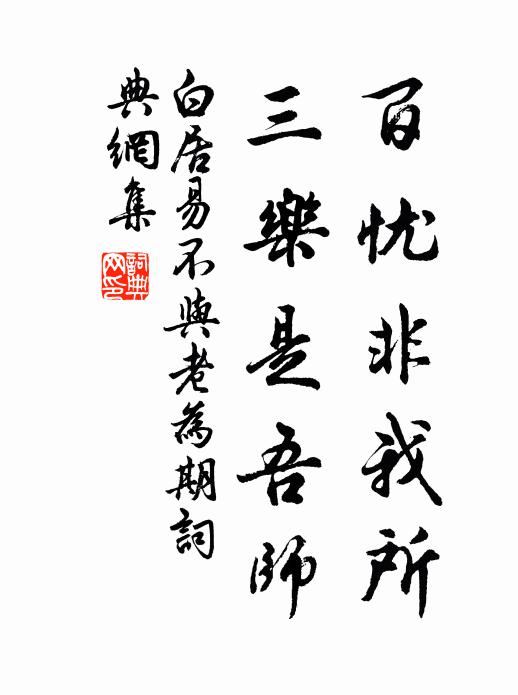 百忧非我所
三樂是吾師
白居易不與老為期詞
典網集
詞典網印